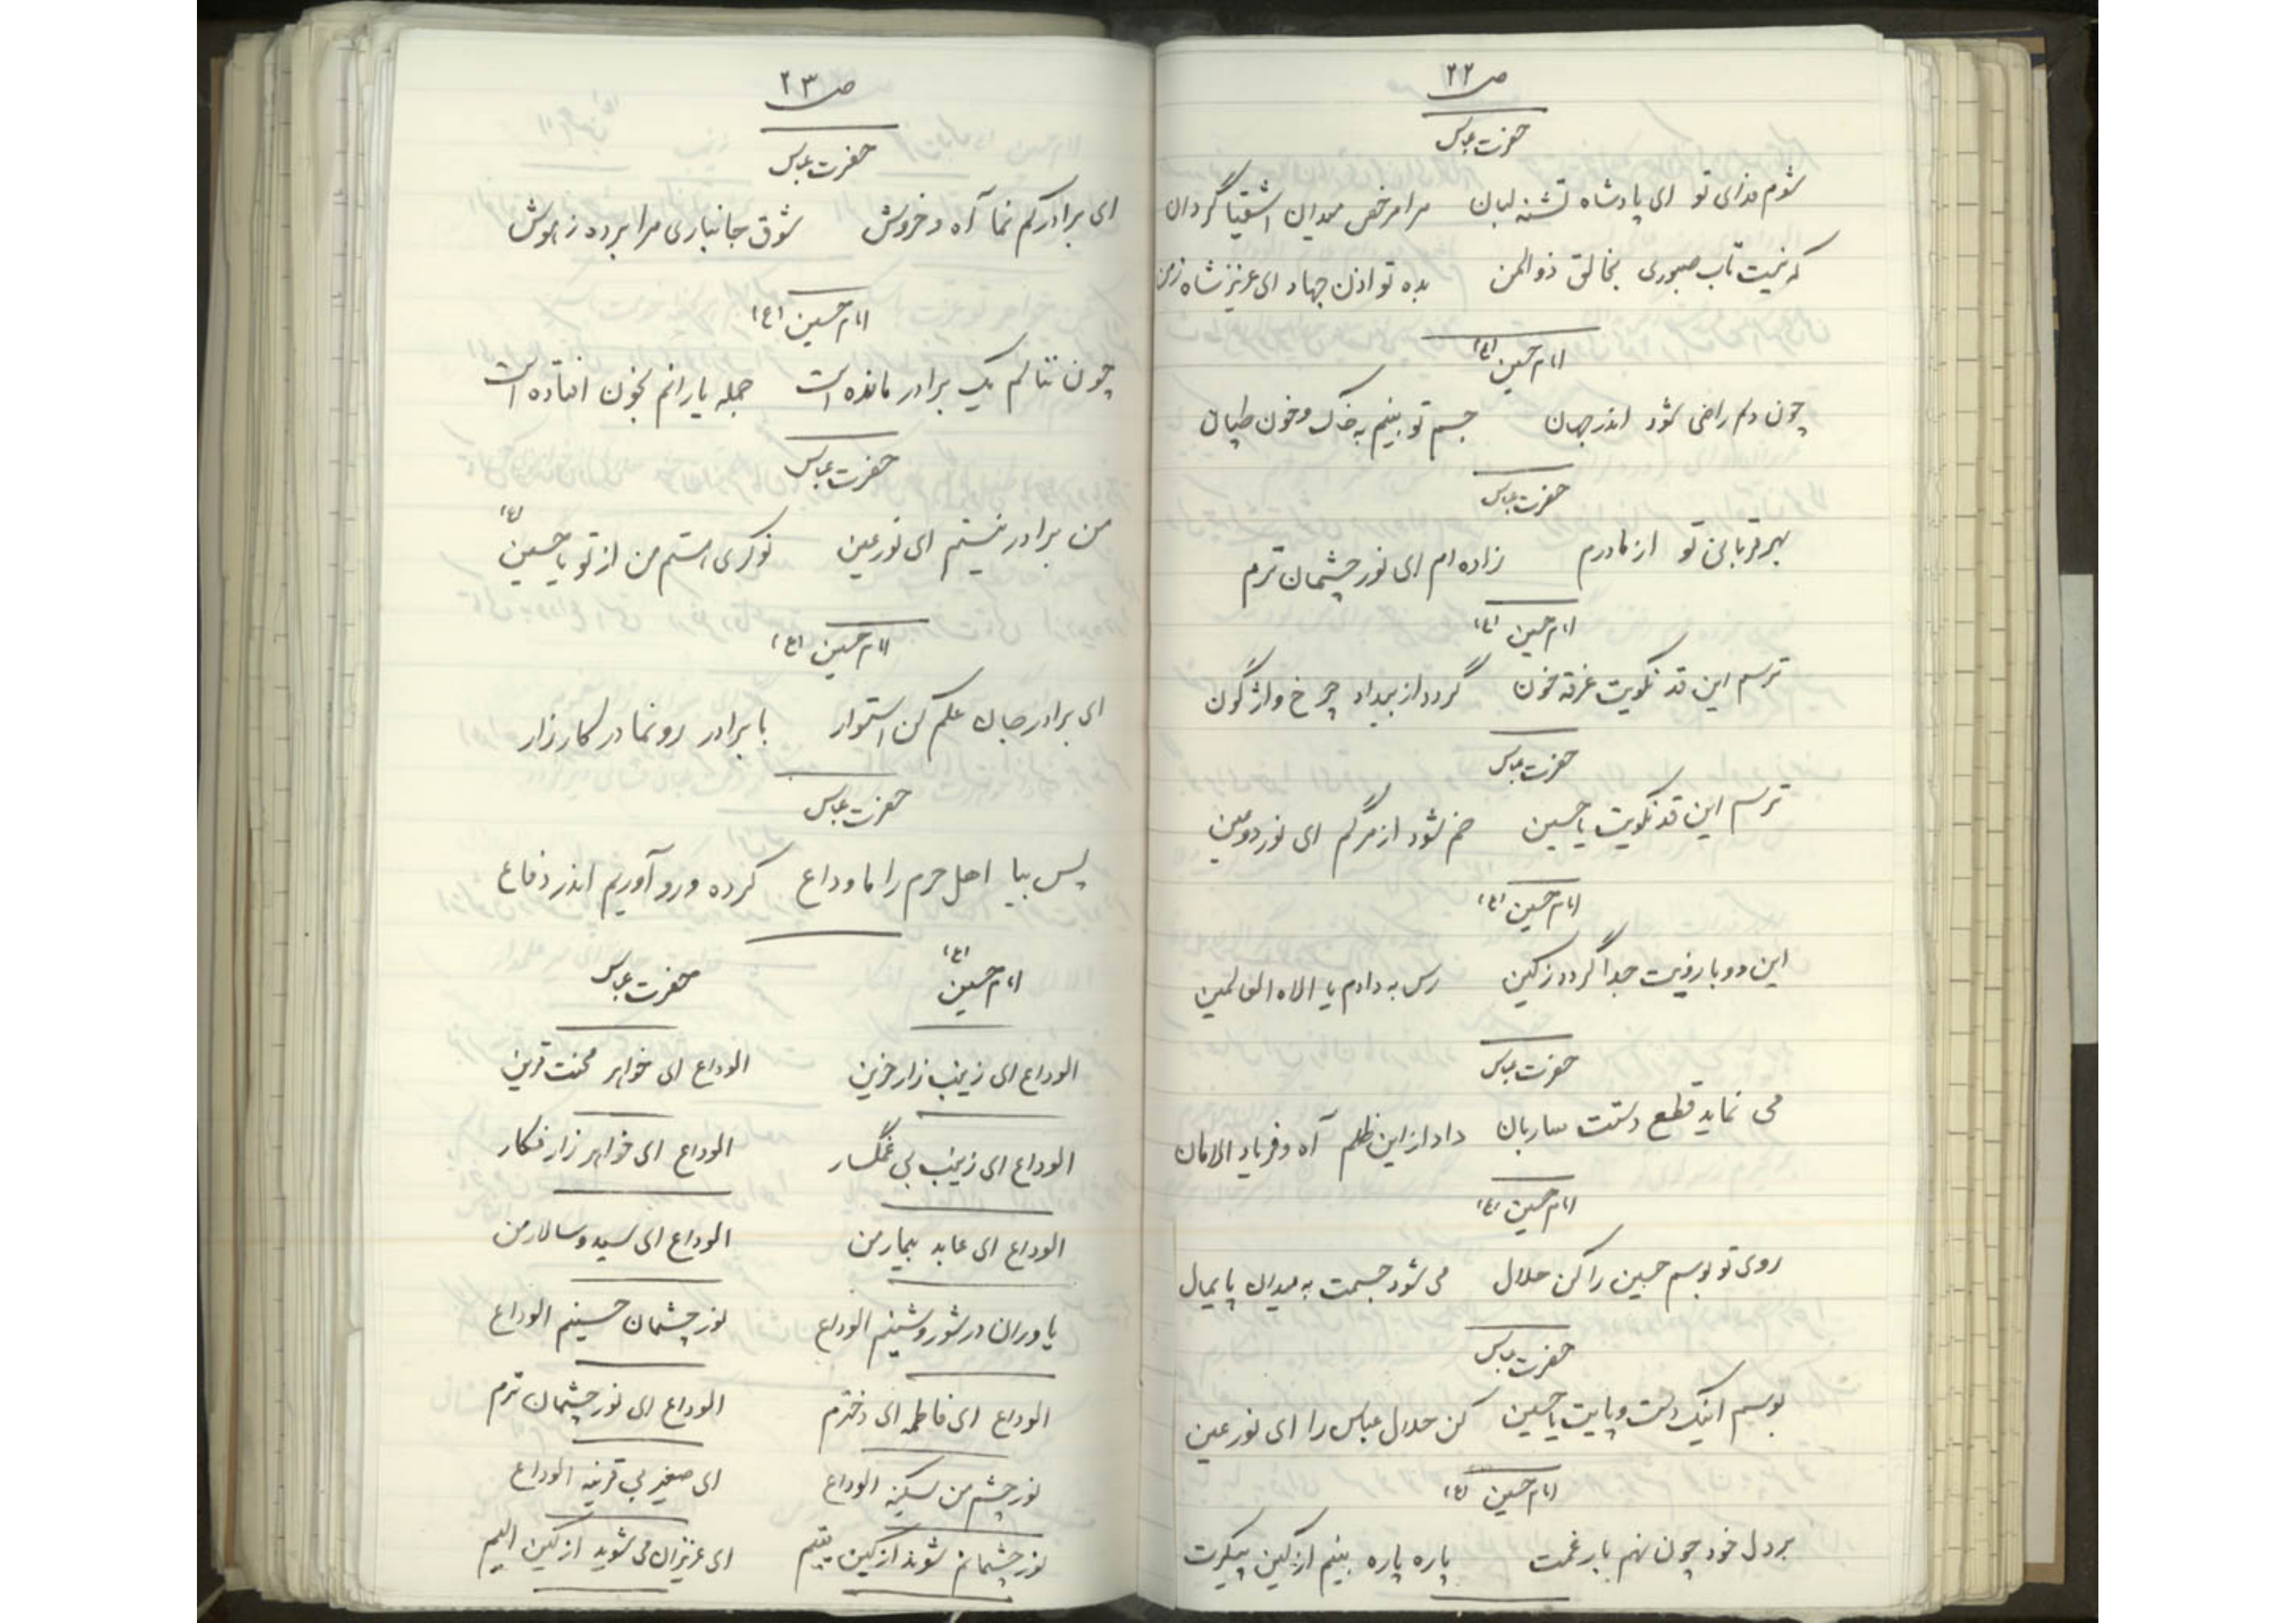 ص ۲۲
حضرت عباس
شوم فدای تو ای پادشاه تشنه لبان مرا مرخص میدان اشقیا گردان
که نیست تاب صبوری بخالق ذوالمنن بده تو اذن جهاد ای عزیز شاه زمن
امام حسین (ع)
چون دلم راضی شود اندر جهان جسم تو بینم به خاک و خون طپان
حضرت عباس
بهر قربانی تو از مادرم زاده ام ای نور چشمان ترم
امام حسین (ع)
ترسم این قد نکویت غرقه خون گردد از بیداد چرخ واژگون
حضرت عباس
ترسم این قد نکویت یا حسین خم شود از مرگم ای نور دو عین
امام حسین (ع)
این دو بازویت جدا گردد ز کین رس به دادم یا الاه العالمین
حضرت عباس
می نماید قطع دستت ساربان داد از این ظلم آه و فریاد الامان
امام حسین (ع)
روی تو بوسم حسین را کن حلال می شود جسمت به میدان پایمال
حضرت عباس
بوسم اینک دست و پایت یا حسین کن حلال عباس را ای نور عین
امام حسین (ع)
بر دل خود چون نهم بار غمت پاره پاره بینم از کین پیکرت
ص ۲۳
حضرت عباس
ای برادر کم نما آه و خروش شوق جانبازی مرا برده ز هوش
امام حسین (ع)
چون ننالم یک برادر مانده است جمله یارانم بخون افتاده است
حضرت عباس
من برادر نیستم ای نور عین نوکری هستم من از تو یا حسین (ع)
امام حسین (ع)
ای برادر جان علم کن استوار با برادر رو نما در کارزار
حضرت عباس
پس بیا اهل حرم را ما وداع کرده و رو آوریم اندر دفاع
امام حسین (ع) حضرت عباس
الوداع ای زینب زار حزین الوداع ای خواهر محنت قرین
الوداع ای زینب بی غمگسار الوداع ای خواهر زار فکار
الوداع ای عابد بیمار من الوداع ای سید و سالار من
یاوران در شور و شینم الوداع نور چشمان حسینم الوداع
الوداع ای فاطمه ای دخترم الوداع ای نور چشمان ترم
نور چشم من سکینه الوداع ای صغیر بی قرینه الوداع
نور چشمانم شوند از کین یتیم ای عزیزان می شوید از کین الیم